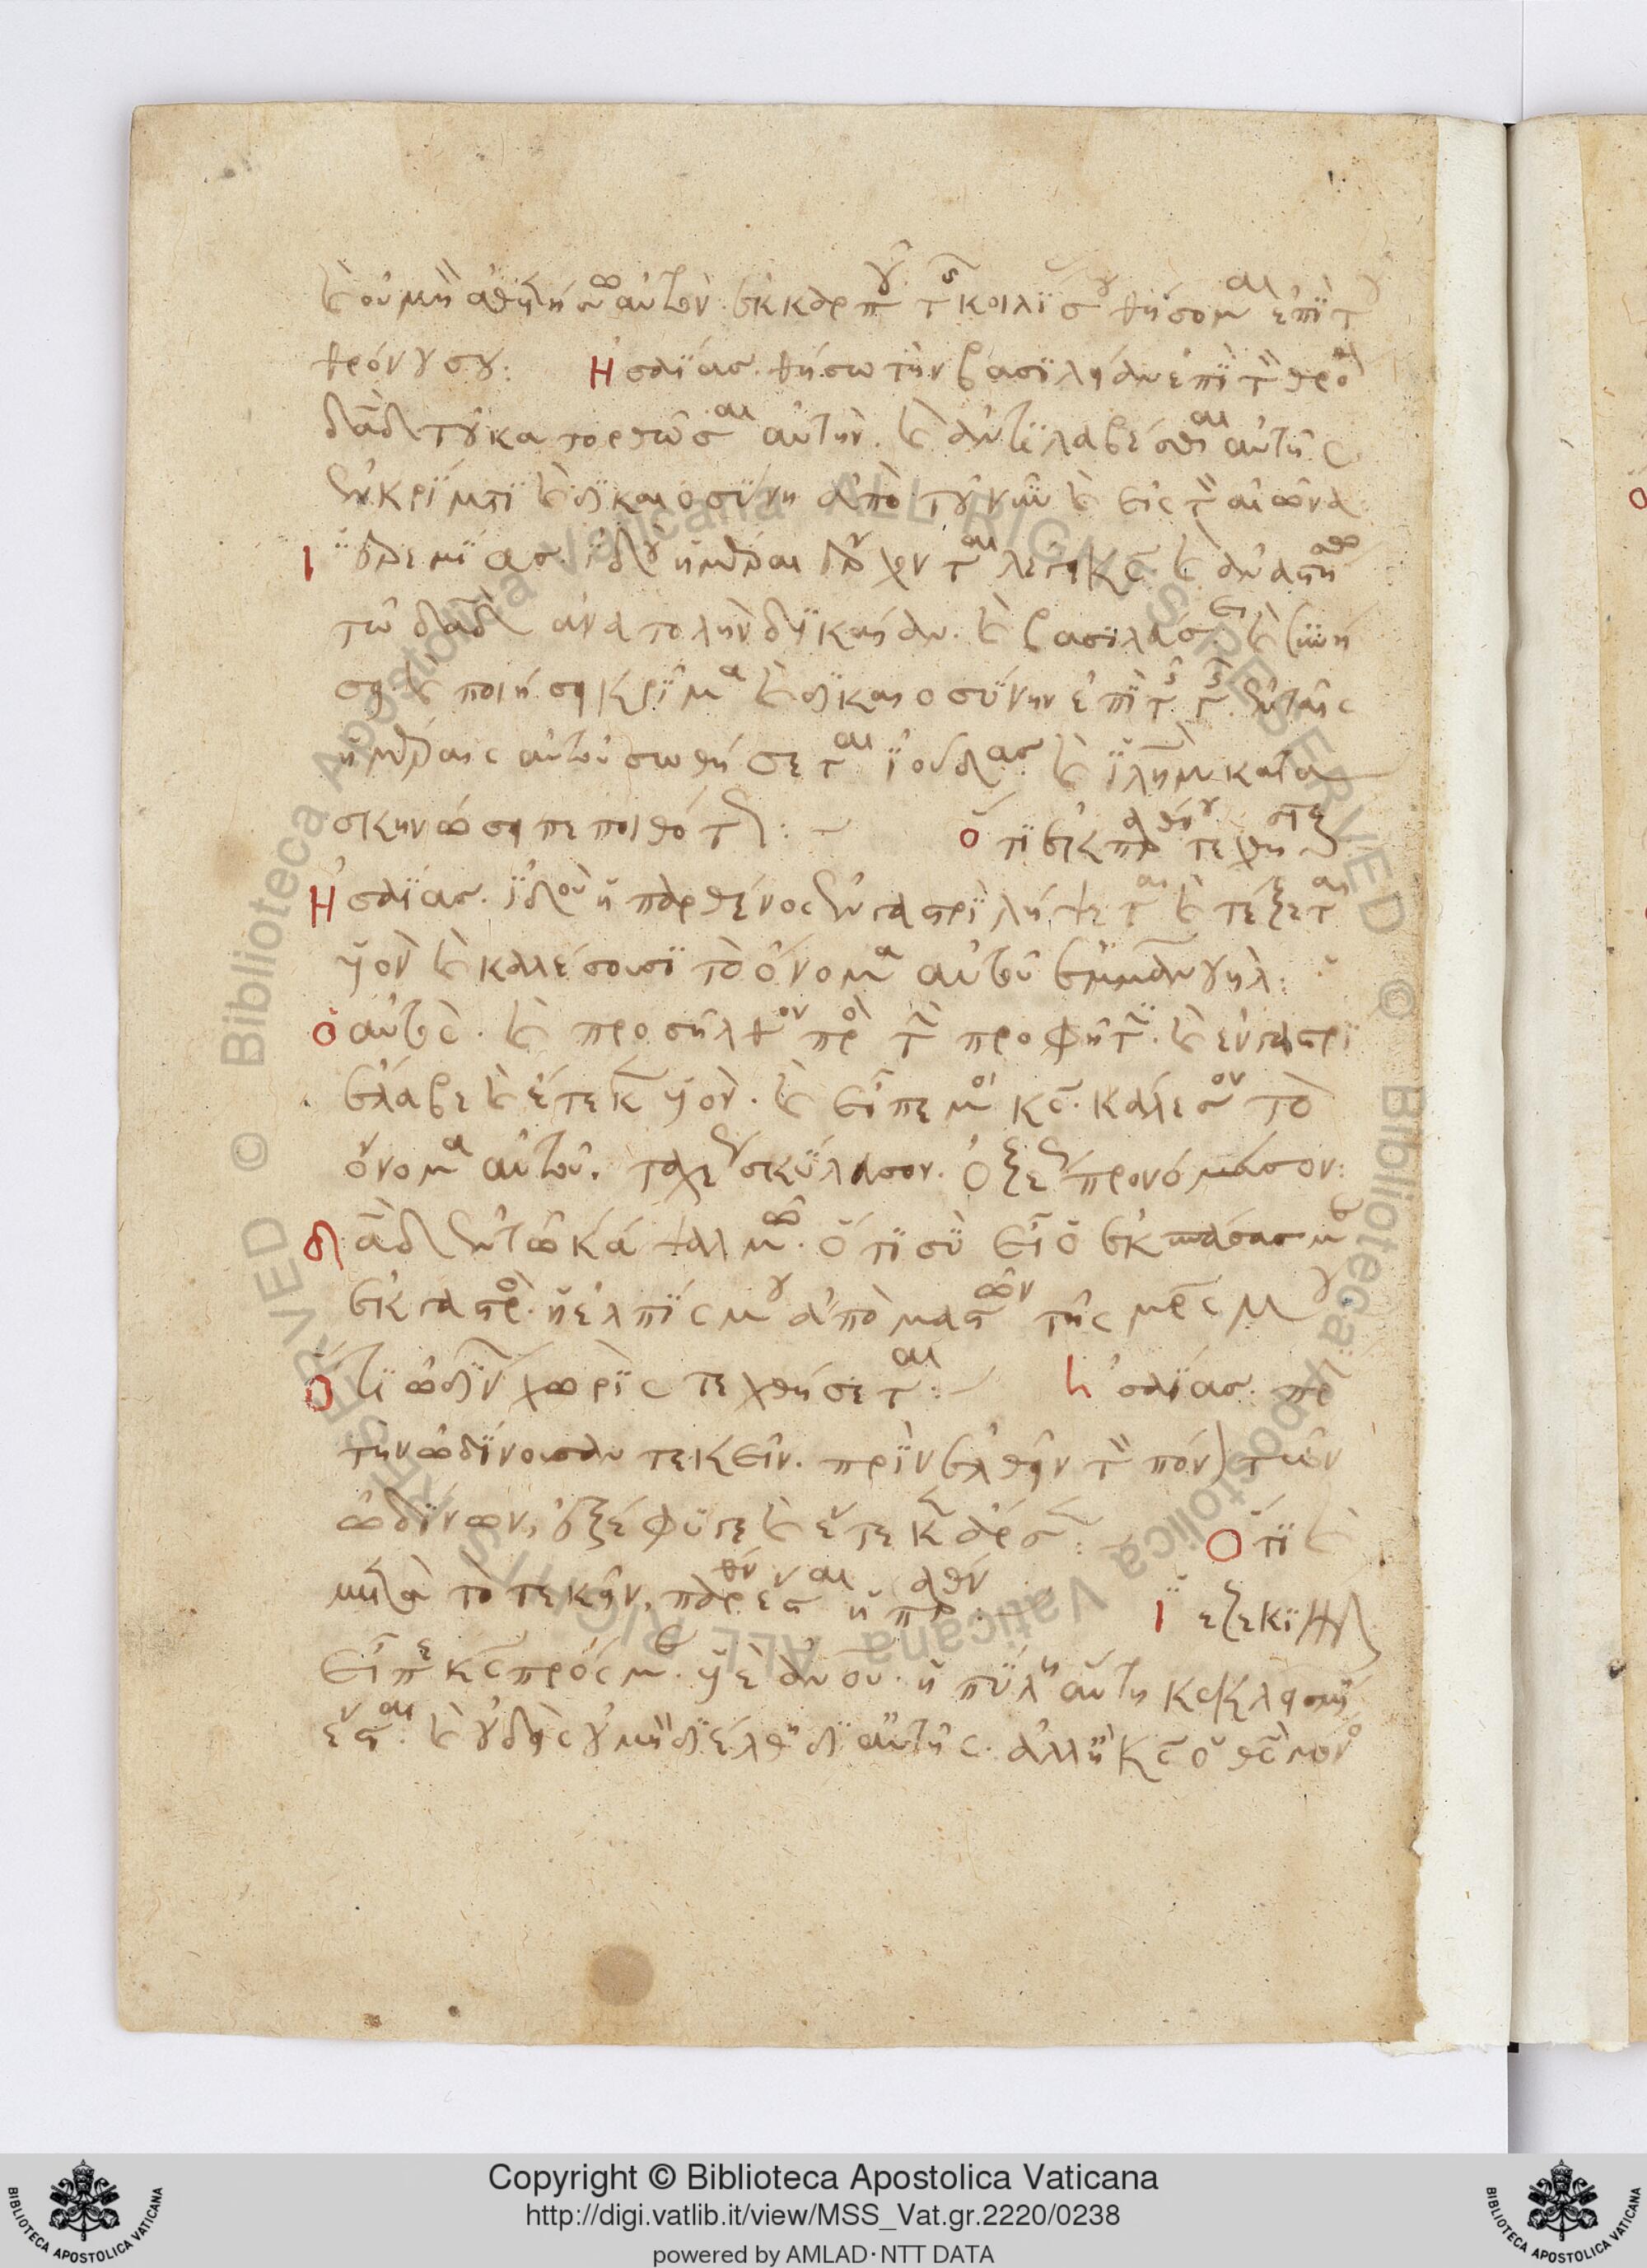 καὶ οὐ μὴ ἀθετήσω αὐτὸν. ἐκ καρποῦ τῆς κοιλίας σου θήσομαι ἐπὶ τοῦ
θρόνου σου: Ἠσαΐας. θήσω τὴν βασιλείαν ἐπὶ τὸν θρόνον
δαδ τοῦ κατορθῶσαι αὐτὴν. καὶ ἀντιλαβέσθαι αὐτῆς
ἐν κρίματι καὶ δικαιοσύνη ἀπὸ τοῦ νῦν καὶ εἰς τὸν αἰῶνα
Ἱερεμίας. ἰδοὺ ἡμέραι ἔρχονται λέγει κς καὶ ἀναστήσω
τῶ δαδ ἀνατολὴν δικαίαν. καὶ βασιλεύσει καὶ συνήσει
καὶ ποιήσει κρῖμα καὶ δικαιοσύνην ἐπὶ τῆς γῆς. ἐν ταῖς
ἡμέραις αὐτοῦ σωθήσεται ἰούδας. καὶ ἰλημ κατα
σκηνώσει πεποιθότως: Ὅτι ἐκ παρθένου τεχθήσεται
Ἠσαΐας. ἰδοὺ ἡ παρθένος ἐν γαστρὶ λήψεται καὶ τέξεται
υἱὸν καὶ καλέσουσι τὸ ὄνομα αὐτοῦ ἐμμανουηλ:
ὁ αὐτὸς. καὶ προσῆλθον πρὸς τὴν προφῆτιν. καὶ ἐν γαστρὶ
ἔλαβε καὶ ἔτεκεν υἱὸν. καὶ εἶπε μοι κς. κάλεσον τὸ
ὄνομα αὐτοῦ. ταχέως σκύλευσον. ὀξέως προνόμευσον:
δαδ ἐν τῶ κά ψαλμῶ. ὅτι σὺ εἶ ὁ ἐκσπάσας με
ἐκ γαστρὸς. ἡ ἐλπίς μου ἀπὸ μαστῶν τῆς μρς μου
Ὅτι ὠδίνων χωρὶς τεχθήσεται: Ἠσαΐας. πρ
τὴν ὠδίνουσαν τεκεῖν. πρὶν ἐλθεῖν τὸν πόνον τῶν
ὠδίνων, ἐξέφυγε καὶ ἔτεκεν ἄρσεν: Ὅτι καὶ
μετὰ τὸ τεκεῖν, παρθένος ἡ παρθένος: Ἰεζεκιήλ
Εἶπε κς πρός με. υἱὲ ανου. ἡ πύλη αὕτη κεκλεισμένη
ἔσται. καὶ οὐδεὶς οὐ μὴ διέλθη δι' αὐτῆς. ἀλλ' ἢ κς ὁ θς μόνος